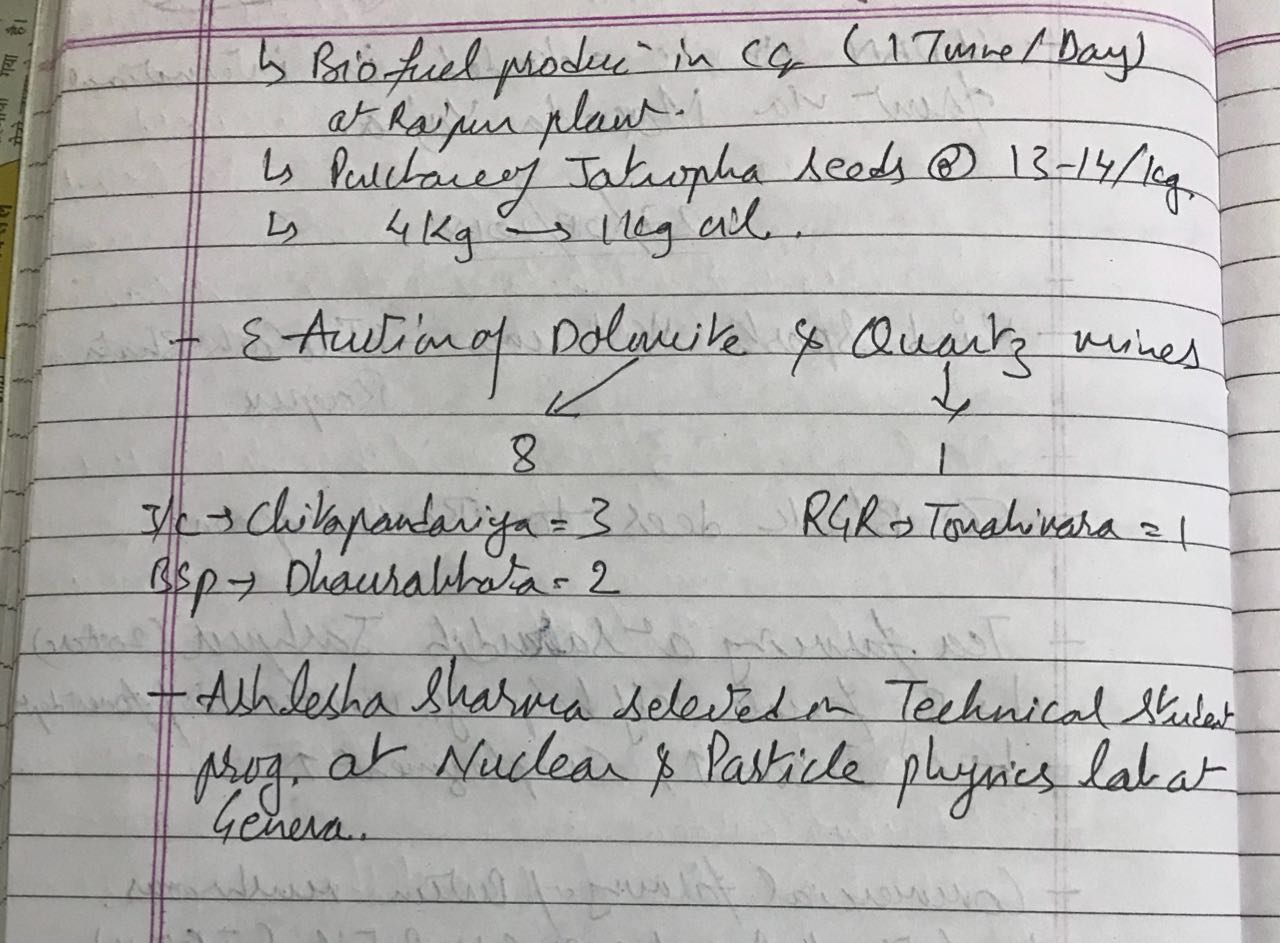 ↳ Biofuel produc^n in CG ( 1 Tunne / Day)
at Raipur plant.
↳ Purchase of Jatropha seeds @ 13-14/kg.
↳ 4 Kg → 1 kg oil.
- E Auction of Dolomite & Quartz mines
↙ ↓
8 1
J/C → Chitapandariya = 3 RGR → Tonahinara = 1
BSP → Dhaurabhata = 2
- Ashlesha Sharma selected in Technical Student
prog. at Nuclear & Particle physics lab at
Geneva.